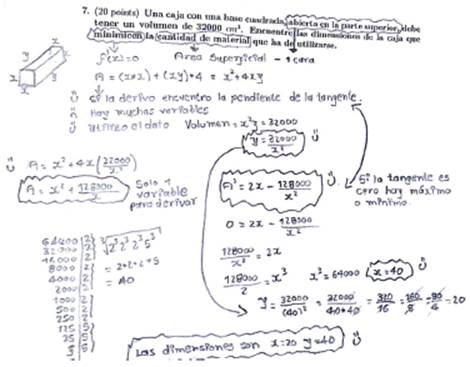 7. (20 points) Una caja con una base cuadrada, abierta en la parte superior, debe
tener un volumen de 32000 cm³. Encuentre las dimensiones de la caja que
minimicen la cantidad de material que ha de utilizarse.
f'(x)=0 Area Superficial - 1 cara
x
y
x
A = (x*x) + (xy)*4 = x²+4xy
Si la derivo encuentro la pendiente de la tangente.
Hay muchas variables
Utilizo el dato Volumen = x²y = 32000
y = 32000/x²
A = x² + 4x(32000/x²)
A = x² + 128000/x
Solo 1
variable
para derivar
(A)' = 2x - 128000/x²
Si la tangente es
cero hay máximo
o mínimo.
0 = 2x - 128000/x²
128000/x² = 2x
128000/2 = x³ x³ = 64000 x=40
y = 32000/(40)² = 32000/40*40 = 320/16 = 160/8 = 80/4 = 20
64000 2
32000 2
16000 2
8000 2
4000 2
2000 2
1000 2
500 2
250 2
125 5
25 5
5 5
∛2³ 2³ 2³ 5³
= 2*2*2*5
= 40
Las dimensiones son x=20 y=40